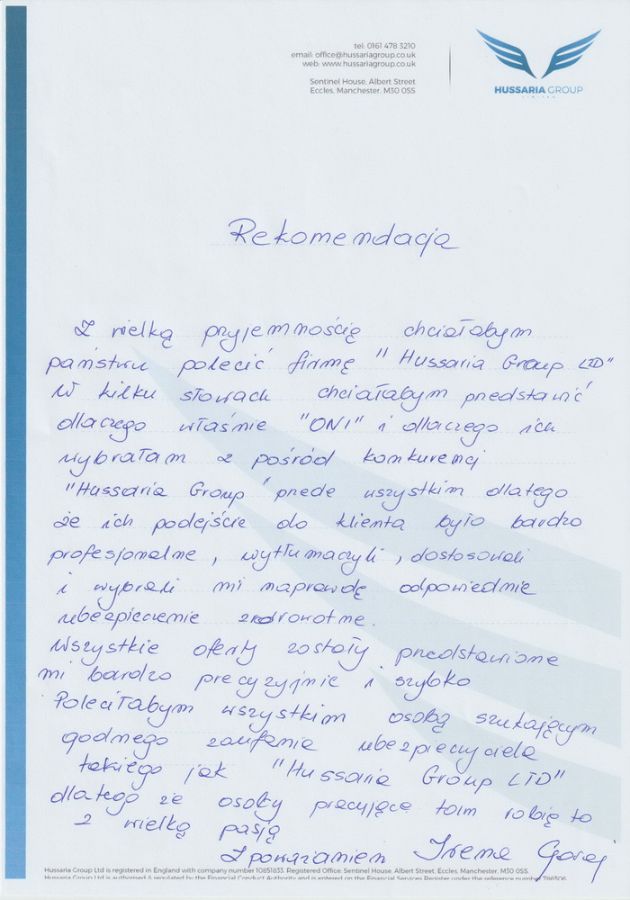 tel: 0161 478 3210
email: office@hussariagroup.co.uk
web: www.hussariagroup.co.uk
Sentinel House, Albert Street
Eccles, Manchester, M30 0SS
HUSSARIA GROUP
LIMITED
Rekomendacja
Z wielką przyjemnością chciałabym
państwu polecić firmę "Hussaria Group LTD"
W kilku słowach chciałabym przedstawić
dlaczego właśnie "ONI" i dlaczego ich
wybrałam z pośród konkurencji
"Hussaria Group" przede wszystkim dlatego
że ich podejście do klienta było bardzo
profesjonalne, wytłumaczyli, dostosowali
i wybrali mi naprawdę odpowiednie
ubezpieczenie zdrowotne.
Wszystkie oferty zostały przedstawione
mi bardzo precyzyjnie i szybko
Poleciłabym wszystkim osobą szukającym
godnego zaufania ubezpieczyciela
takiego jak "Hussaria Group LTD"
dlatego że osoby pracujące tam robię to
z wielką pasją
Z poważaniem Irena
Hussaria Group Ltd is registered in England with company number 10851833. Registered Office: Sentinel House, Albert Street, Eccles, Manchester, M30 0SS.
Hussaria Group Ltd is authorised & regulated by the Financial Conduct Authority and is entered on the Financial Services Register under the reference number